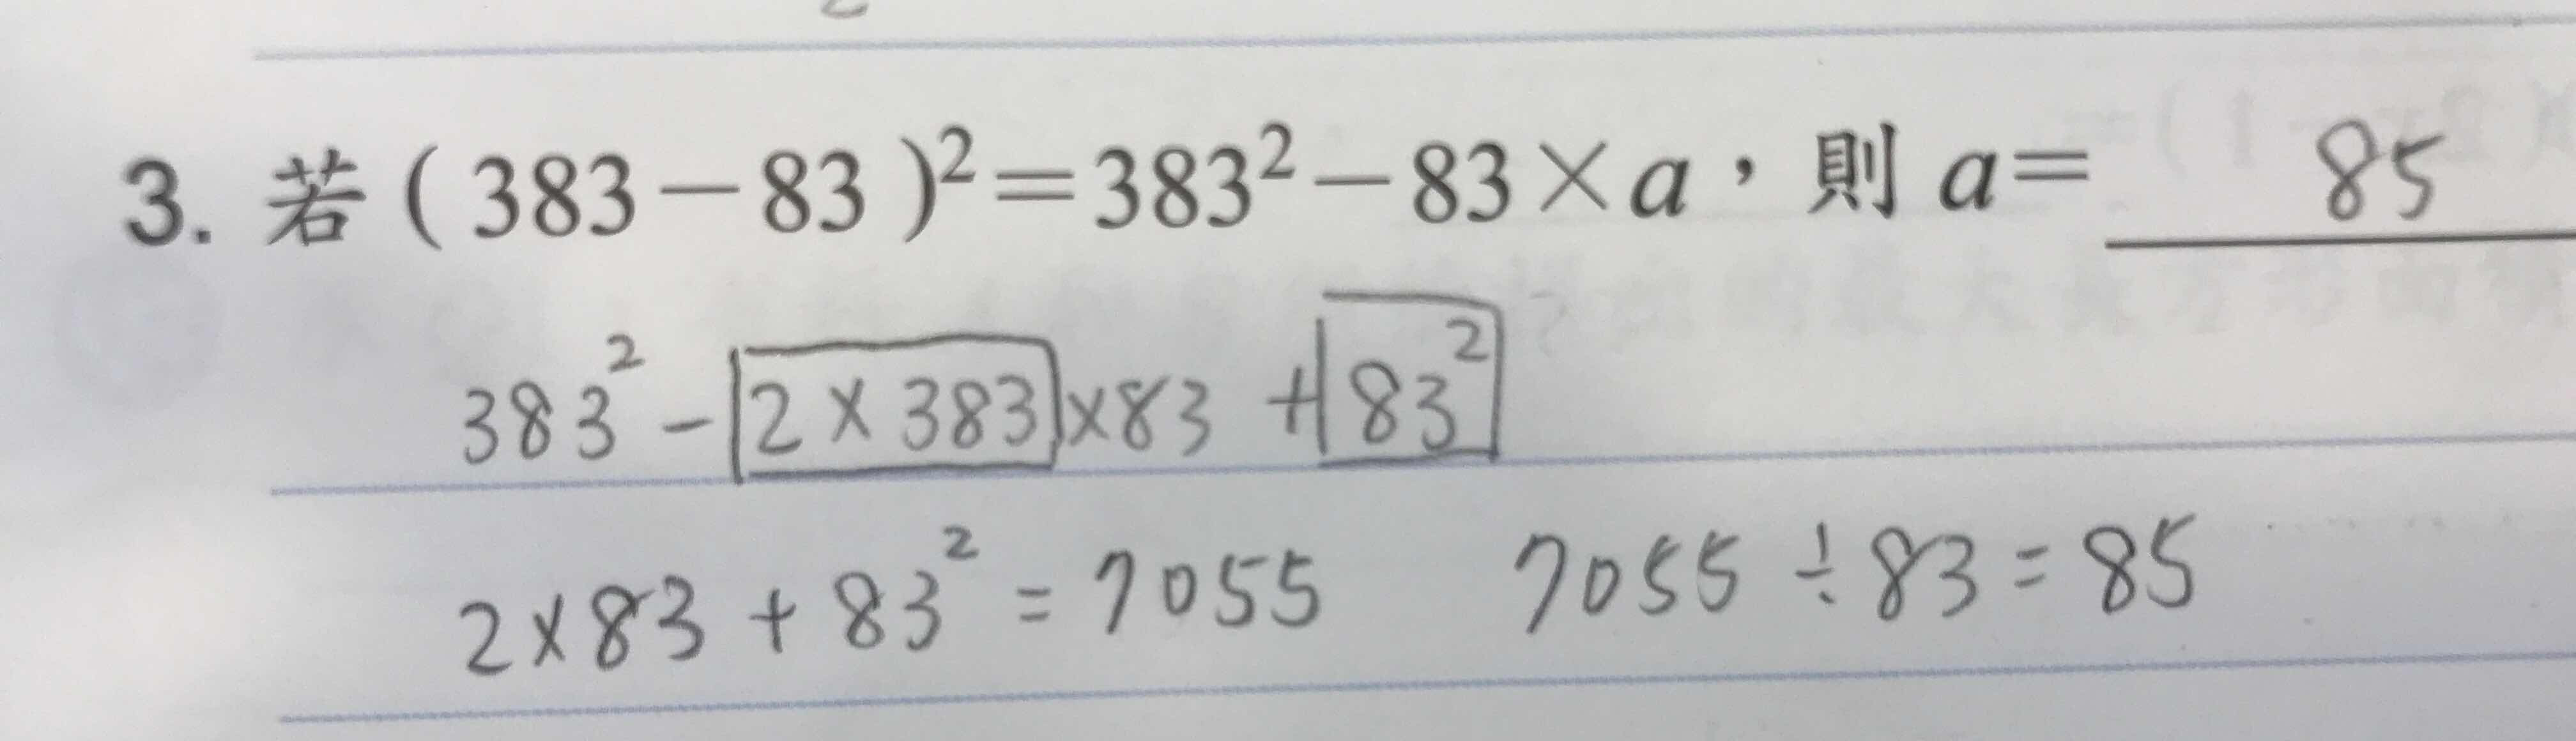 3. 若(383－83)²＝383²－83×a，則 a＝ 85
383² - 2×383 ×83 + 83²
2×83 + 83² = 7055 7055 ÷ 83 = 85